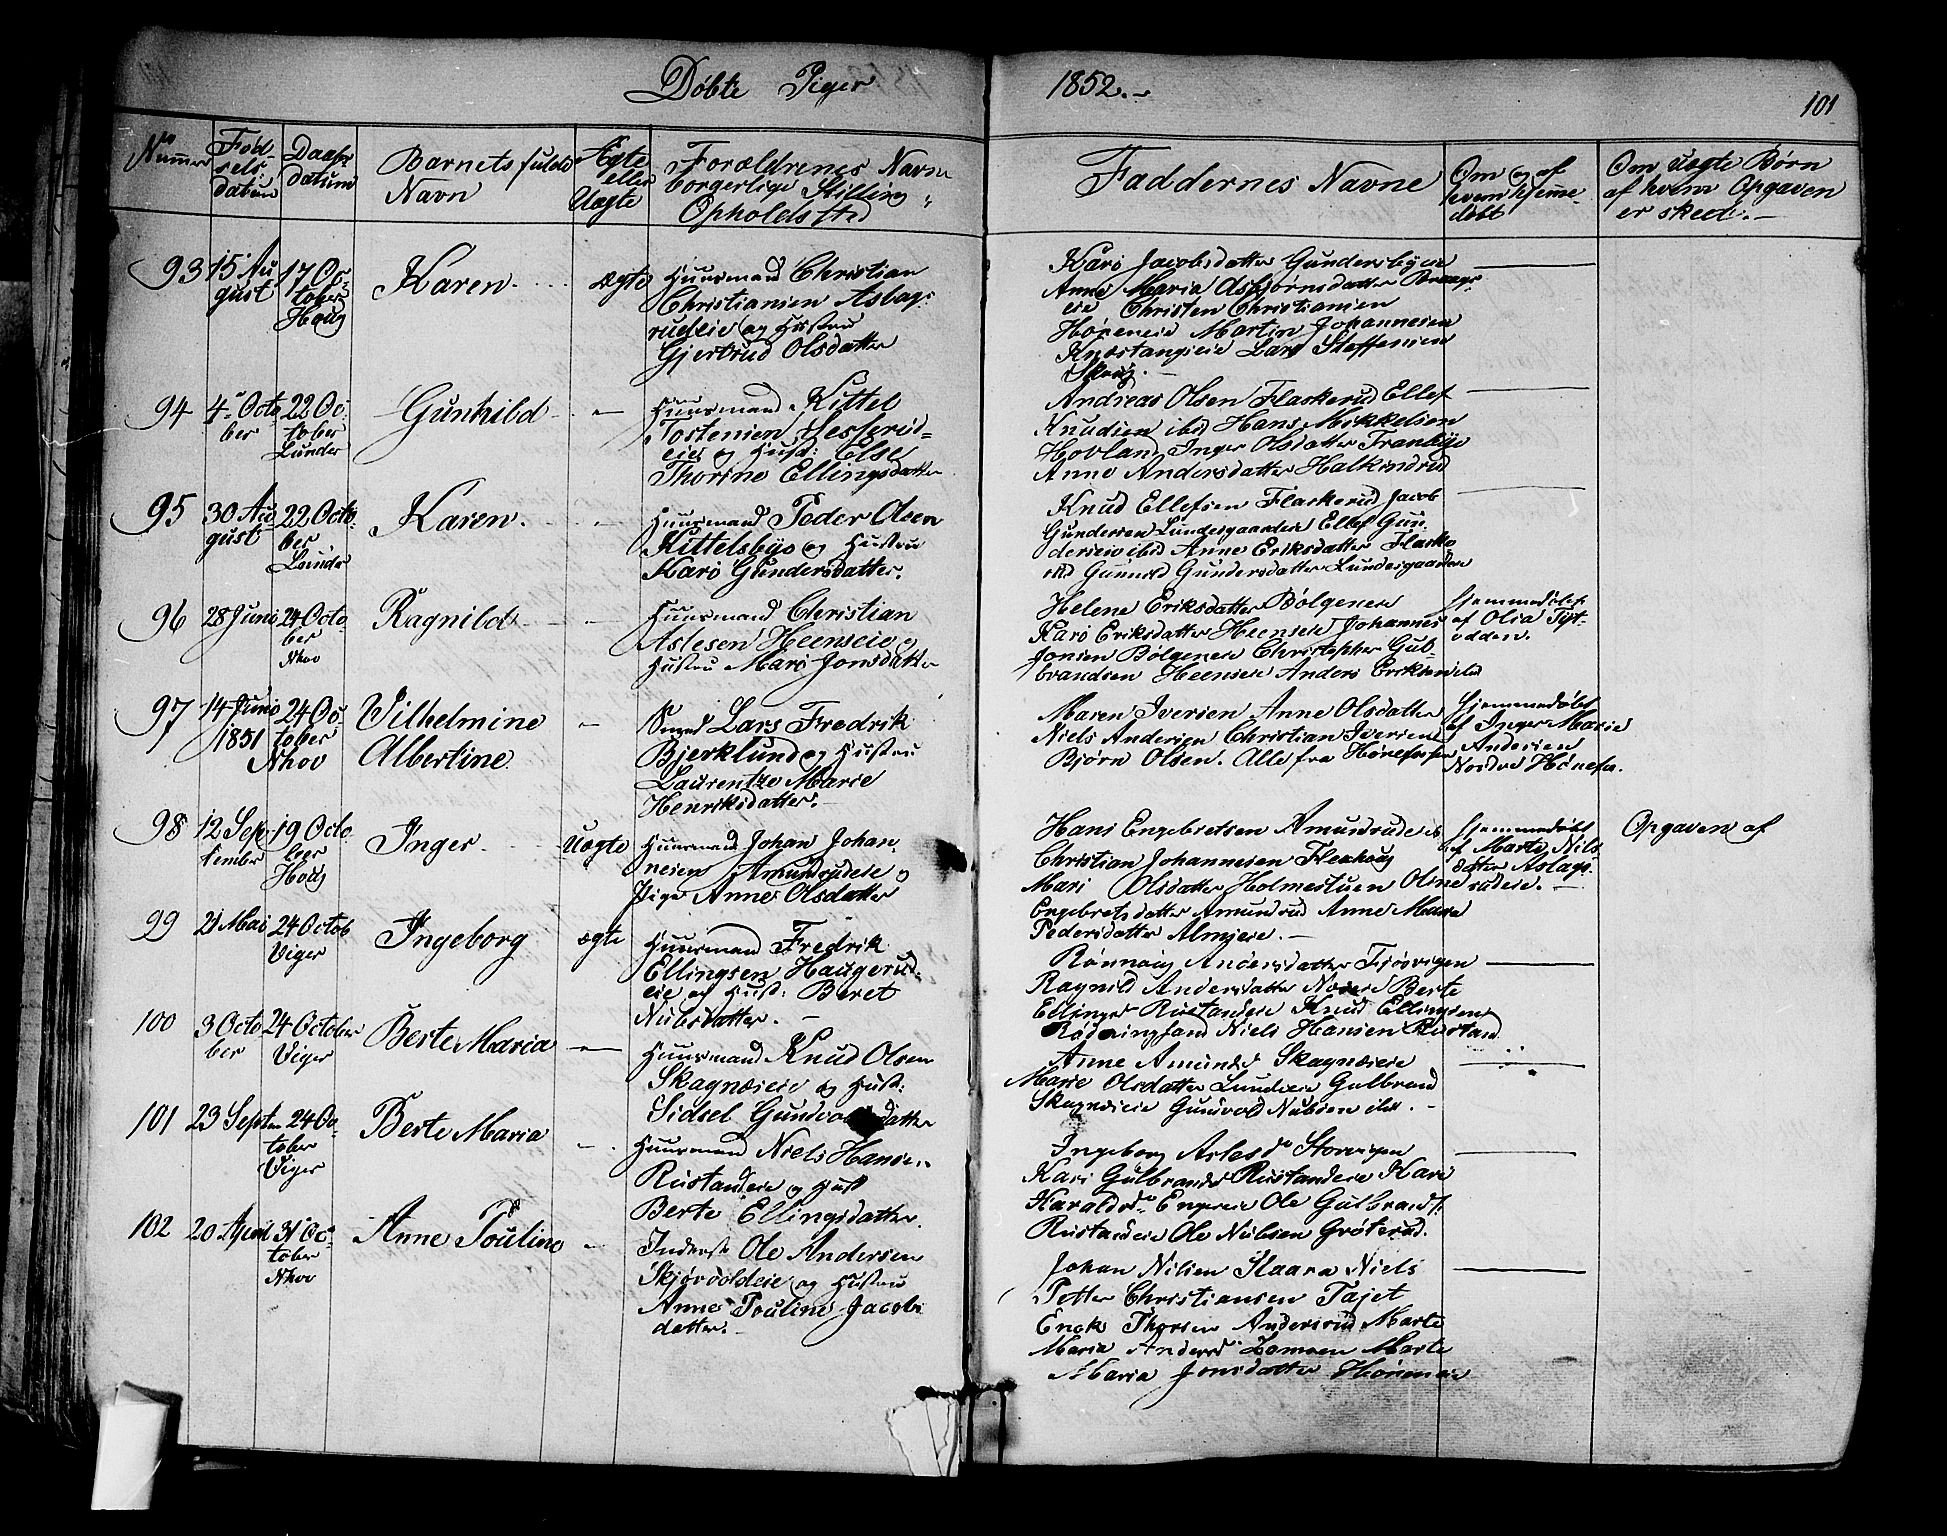 Døbte Piger 1852.
101
Nummer
Fødselsdatum
Daabsdatum
Barnets fulde Navn
Ægte eller Uægte
Forældrenes Navn borgerlige Stilling Opholdssted
Faddernes Navne
Om og af hvem hjemmedøbt
Om uægte Børn af hvem Opgaven er skeet.
93 15 August 17 October Houg Karen ægte
Huusmand Christian
Christiansen Aslags
rudeie og Hustru
Gjertrud Olsdatter
Kari Jacobsdatter
Anne Maria Asbjørnsdatter
eie Christen Christiansen
Høneneie Martin Johannesen
Lars Steffensen
94 4 October 22 October Lunder Gunhild -
Huusmand Kittel
Tostensen
eie og Hust: Else
Thorine Ellingsdatter
Andreas Olsen Flaskerud Ellef
Knudsen ibid Hans Mikkelsen
Hovland Inger Olsdatter
Anne Andersdatter
95 30 August 22 October Lunder Karen -
Huusmand Peder Olsen
Kittelsbye og Hustru
Kari Gundersdatter.
Knud Ellefsen Flaskerud Jacob
Gundersen Lundesgaarden Ellef Gun
dersen ibid Anne Eriksdatter Flaske
rud Gunnild Gundersdatter Lundesgaarden
96 28 Juni 24 October Nhov Ragnild -
Huusmand Christian
Aslesen Heenseie og
Hustru Mari Jonsdatter
Helene Eriksdatter Bølgeneie
Kari Eriksdatter Heenseie Johannes
Jonsen Bølgeneie Christopher Gul
brandsen Heenseie Anders Eriksen ibid
Hjemmedøbt
af Olia Tyt
odden.
97 14 Juni 1851 24 October Nhov Vilhelmine Albertine. -
Smed Lars Fredrik
Bjerklund og Hustru
Laurentze Marie
Henriksdatter.
Maren Iversen Anne Olsdatter
Niels Andersen Christian Iversen
Bjørn Olsen. Alle fra Hønefossen
Hjemmedøbt
af Inger Marie
Andersen
Nordre Hønefos.
98 12 September 19 October Houg Inger Uægte
Huusmand Johan Johan
nesen Amundrudeie og
Pige Anne Olsdatter
Hans Engebretsen Amundrudeie
Christian Johannesen
Mari Olsdatter Holmestuen Oline
Engebretsdatter Amundrud Anne Maria
Pedersdatter Almeie.
Hjemmedøbt
af Marte Nils
datter Aslags
rudeie.
Opgaven af
99 21 Mai 24 Octob Viger Ingeborg ægte
Huusmand Fredrik
Ellingsen Haugerud
eie og Hust: Beret
Nilsdatter.
Rønnaug Andersdatter
Ragnild Andersdatter Berte
Ellings Rustandeie Knud Ellingsen
Niels Hansen Rustand
100 3 October 24 October Viger Berte Maria -
Huusmand Knud Olsen
Skagnæseie og Hust:
Sidsel datter
Anne Amunds Skagnæseie
Marie Olsdatter Lundeeie Gulbrand
Skagnæseie Gunvold Nilsen ibid.
101 23 Septem 24 October Viger Berte Maria -
Huusmand Niels Hansen
Rustandeie og Hust
Berte Ellingsdatter.
Ingeborg Aslesd Storvigen
Kari Gulbrandsd Rustandeie Kari
Haraldsd Engeeie Ole Gulbrands.
Rustandeie Ole Nilsen Grøterud.
102 20 April 31 October Nhov Anne Pouline -
Inderst Ole Andersen
Skjørvoldeie og Hustru
Anne Pouline Jacobs
datter.
Johan Nilsen Skaara Niels
Petter Christiansen Tajet
Enok Thorsen Andersrud Marte
Maria Andersd Marte
Maria Jonsdatter Høneneie